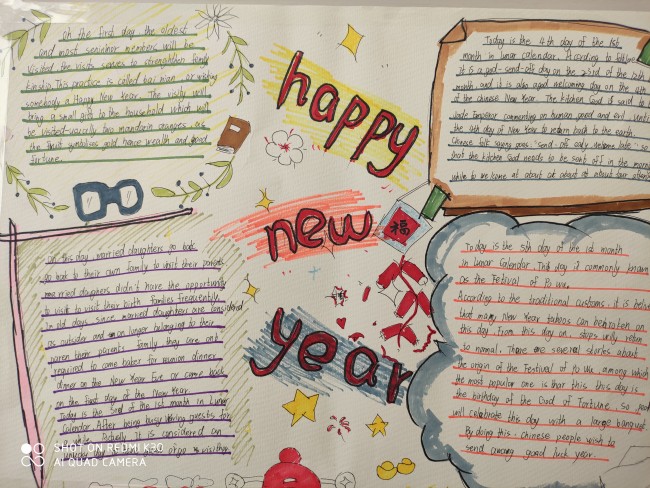 On the first day the oldest
and most senior members will be
visited the visits serves to strengthen family
kinship. This practice is called bai nian or wishing
somebody a Happy New Year. The visitly will
bring a small gift to the household which will
be visited usually two mandarin oranges are
the fruit symbolizes gold hence wealth and good
fortune.
happy
new
year
福
Today is the 4th day of the 1st
month in lunar calendar. According to folklore
it is a god-send-off day on the 23rd of the 12th
month, and it is also a god welcoming day on the 4th
of the Chinese New Year. The kitchen God is said to
Jade Emperor commenting on human good and evil until
the 4th day of New Year to return back to the earth.
Chinese folk saying goes "send-off early welcome late" so
that the kitchen God needs to be sent off in the morning
while to welcome at about at about at about four
On this day married daughters go back
go back to their own family to visit their parents
married daughters didn't have the opportunity
to visit to visit their birth families frequently
In old days since married daughters are considered
as outsider and on longer belonging to their
paren their parents family they are only
required to come baker for reunion dinner
dinner on the New Year Eve or came back
on the first day of the New Year
Today is the 3rd of the 1st month in Lunar
Calendar After being busy during guests for
It is considered an
Today is the 5th day of the 1st month
in lunar Calendar. This day if commonly known
as the Fetival of Po Wu.
According to the traditional customs, it is belie
that many New Year taboos can be broken on
this day. From this day on, stops will return
to normal. There are several stories about
the origin of the Festival of Po Wu among which
the most popular one is that this this day is
the birthday of the God of Fortune, so
will celebrate this day with a large banquet
By doing this, Chinese people wish to
send among good luck year.
SHOT ON REDMI K30
AI QUAD CAMERA